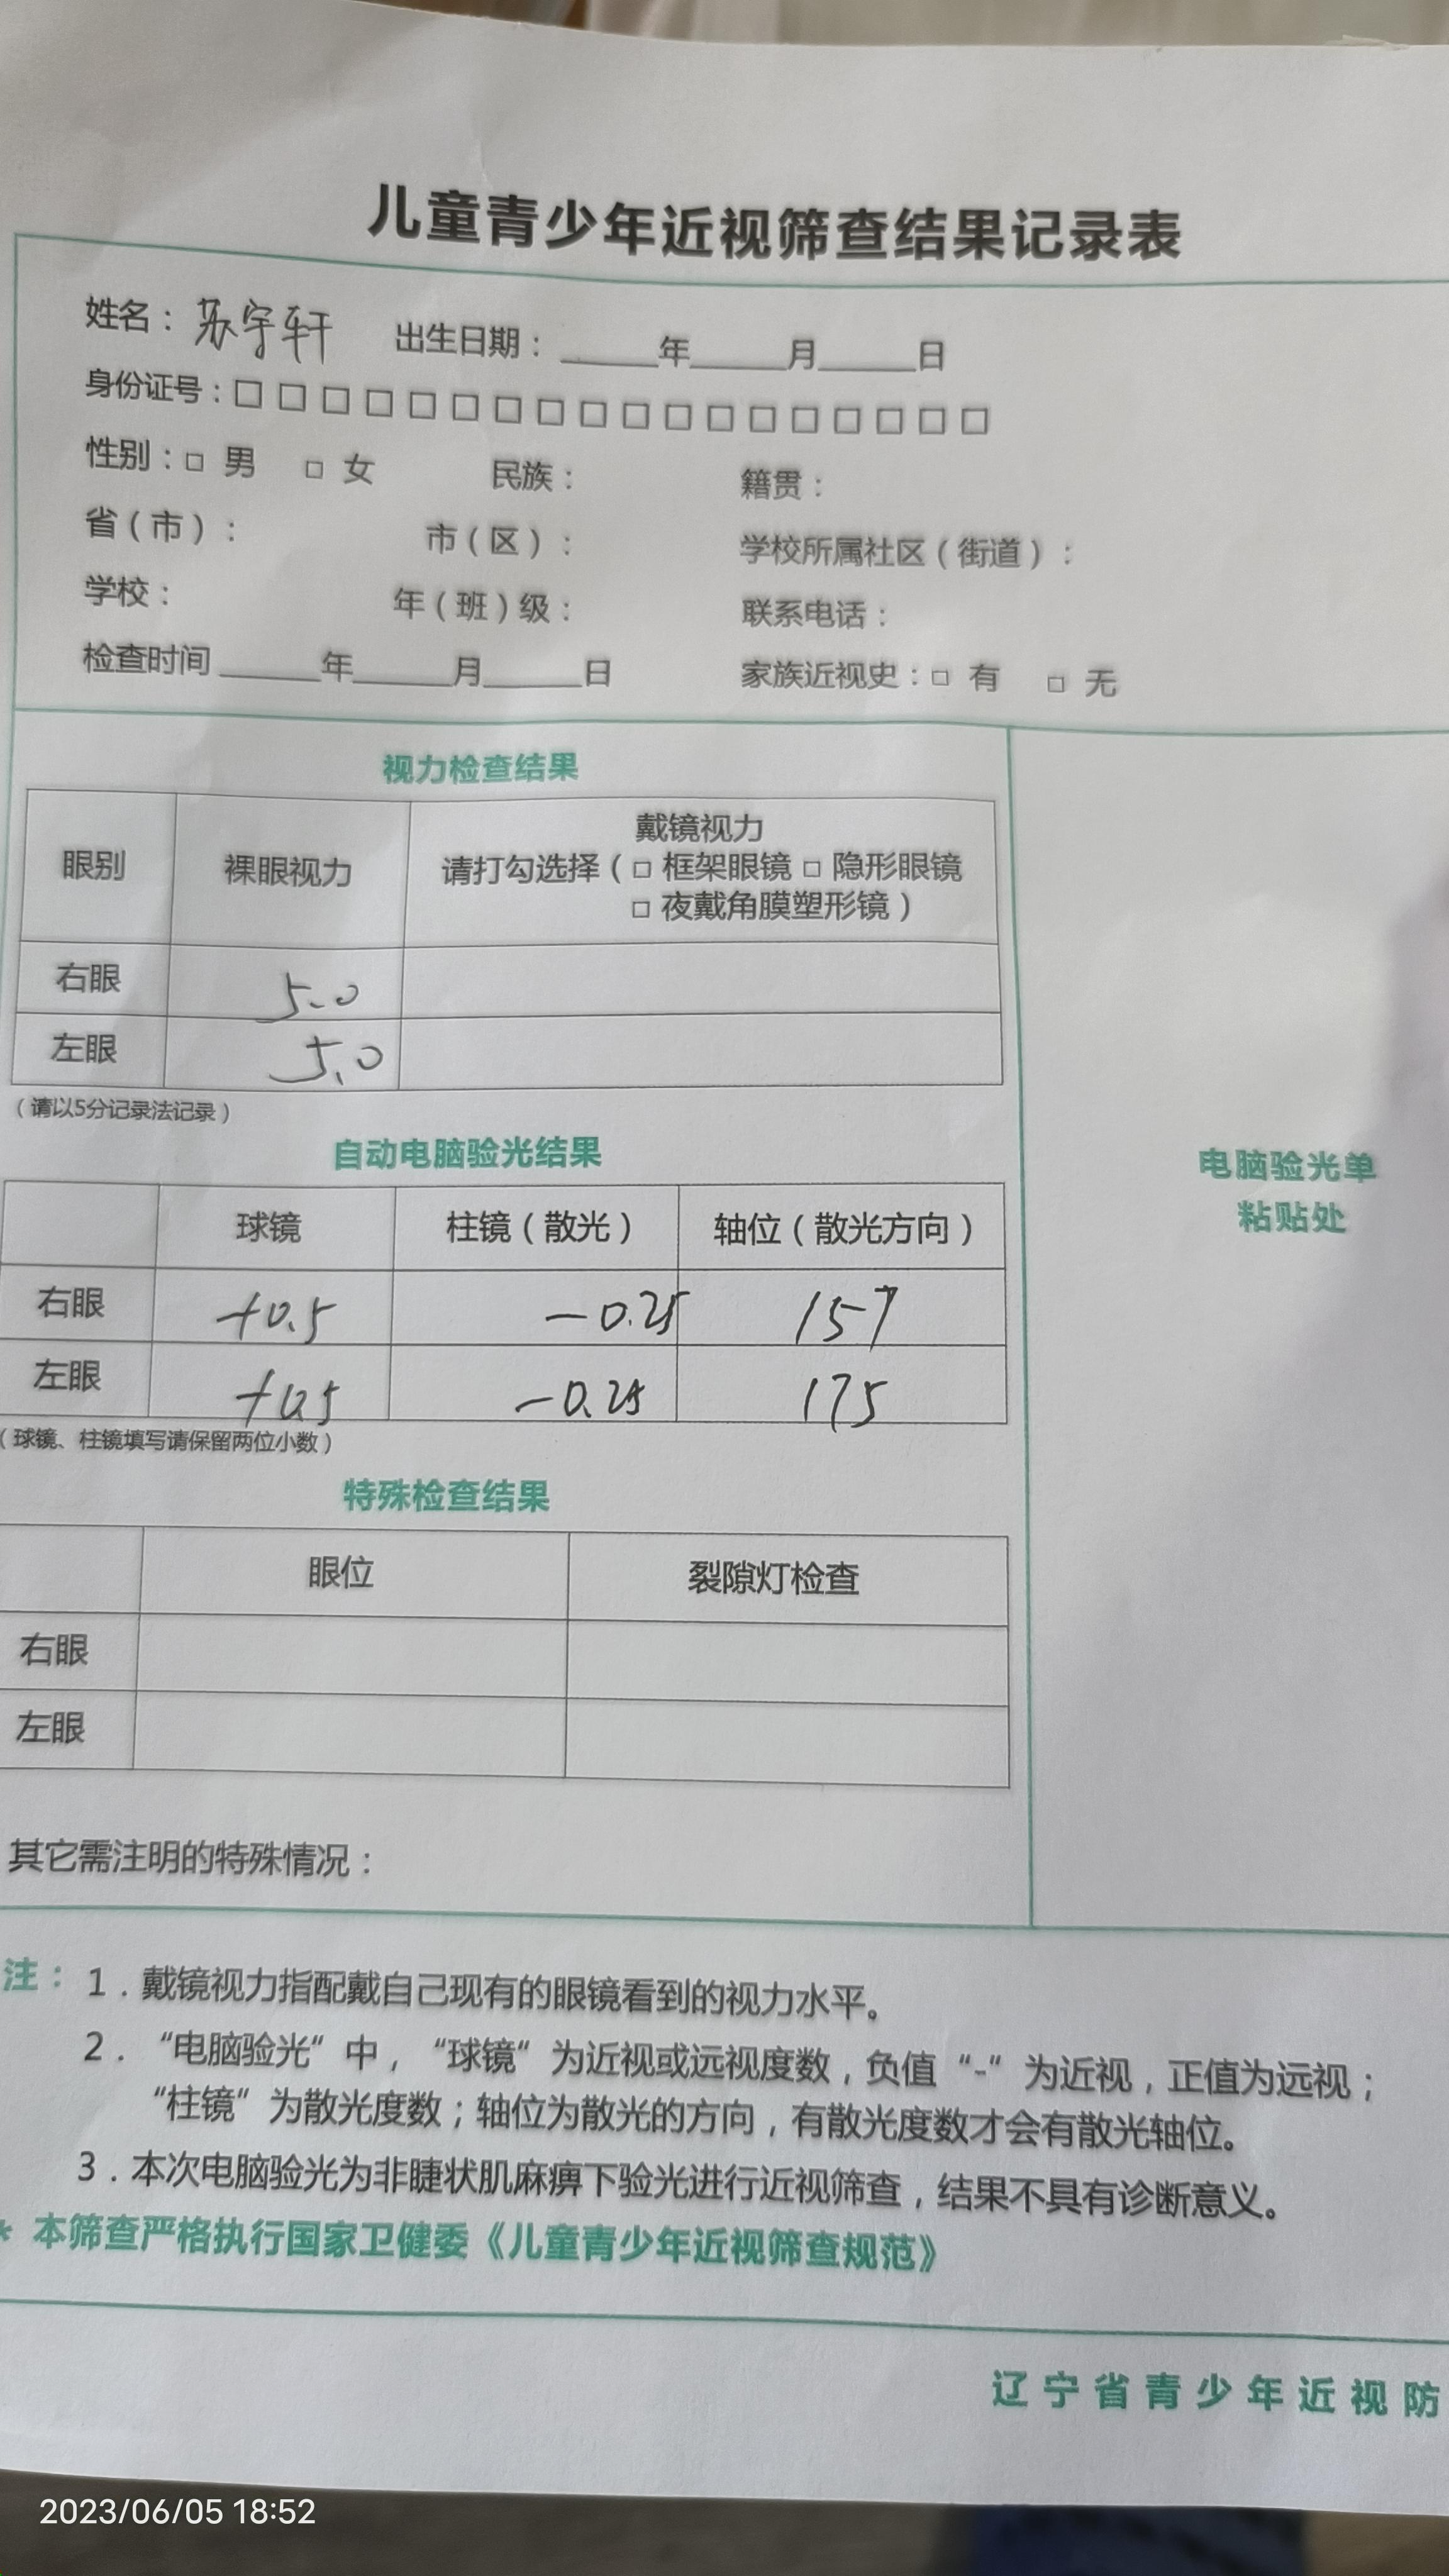 儿童青少年近视筛查结果记录表
姓名：苏宇轩 出生日期：______年______月______日
身份证号：□□□□□□□□□□□□□□□□□□
性别：□ 男 □ 女 民族： 籍贯：
省（市）： 市（区）： 学校所属社区（街道）：
学校： 年（班）级： 联系电话：
检查时间______年______月______日 家族近视史：□ 有 □ 无
视力检查结果
眼别 裸眼视力 戴镜视力
请打勾选择（□ 框架眼镜 □ 隐形眼镜
□ 夜戴角膜塑形镜）
右眼 5.0
左眼 5.0
（请以5分记录法记录）
自动电脑验光结果
球镜 柱镜（散光） 轴位（散光方向）
右眼 +0.5 -0.25 157
左眼 +0.5 -0.25 175
（球镜、柱镜填写请保留两位小数）
特殊检查结果
眼位 裂隙灯检查
右眼
左眼
其它需注明的特殊情况：
电脑验光单
粘贴处
注：1．戴镜视力指配戴自己现有的眼镜看到的视力水平。
2．“电脑验光“中，“球镜”为近视或远视度数，负值“-”为近视，正值为远视；
“柱镜”为散光度数；轴位为散光的方向，有散光度数才会有散光轴位。
3．本次电脑验光为非睫状肌麻痹下验光进行近视筛查，结果不具有诊断意义。
* 本筛查严格执行国家卫健委《儿童青少年近视筛查规范》
辽宁省青少年近视防
2023/06/05 18:52